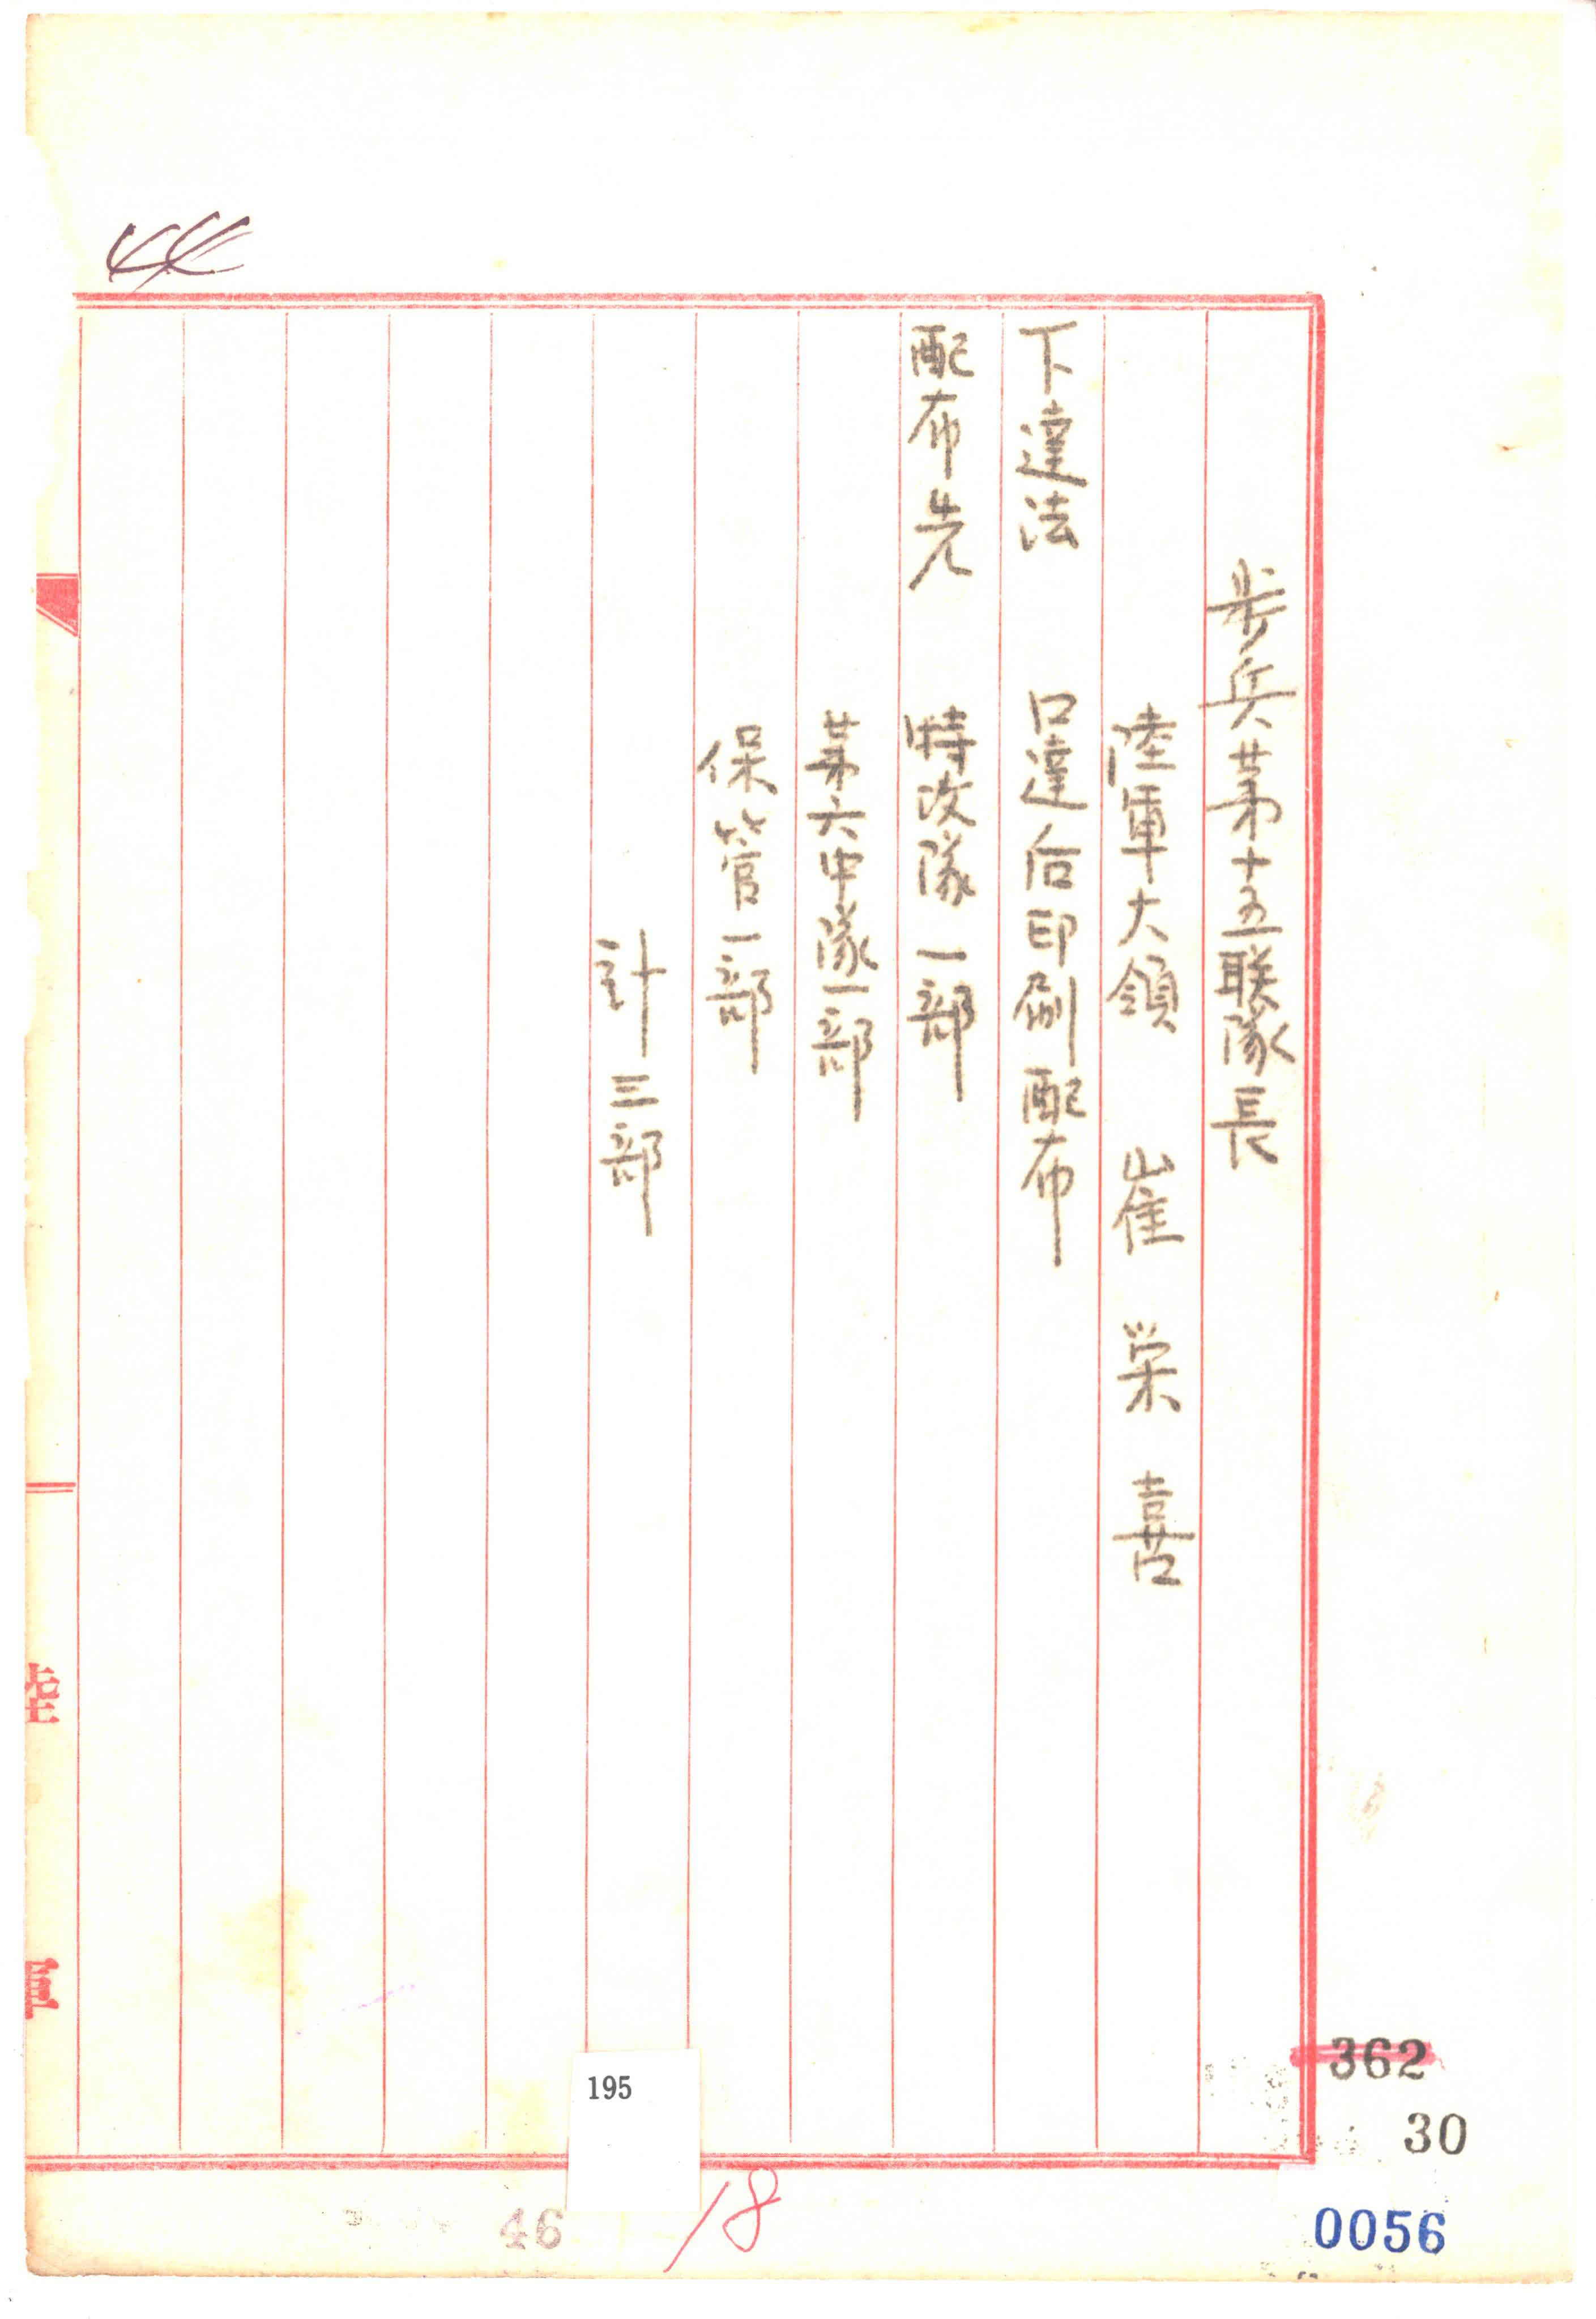 步兵第十五联隊長
陸軍大領 崔栄喜
下達法 口達后印刷配布
配布先 特攻隊 一部
第六中隊一部
保管一部
計 三部
44
陸
軍
362
30
0056
195
18
46